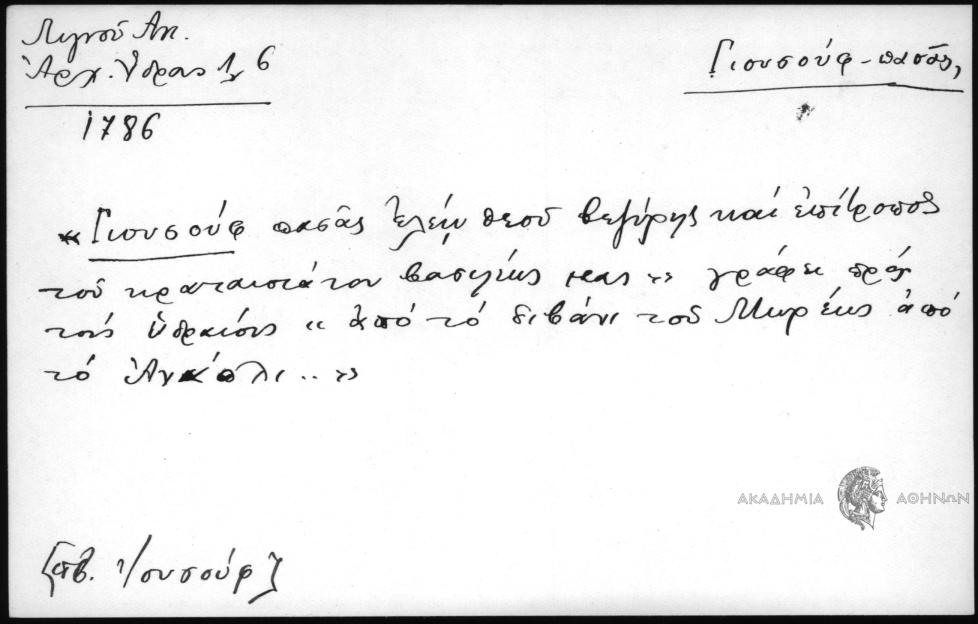 Λιγνοῦ Ἀπ.
Ἀρχ. Ὕδρας 1, 6
1786
Γιουσούφ-πασᾶς,
« Γιουσούφ πασᾶς ἐλέῳ θεοῦ βεζύρης καί ἐπίτροπος
τοῦ κραταιοτάτου βασιλέως μας » γράφει πρός
τούς Ὑδραίους « ἀπό τό διβάνι τοῦ Μωρέως ἀπό
τό .. »
ΑΚΑΔΗΜΙΑ ΑΘΗΝΩΝ
[πβ. Ἰουσούφ]